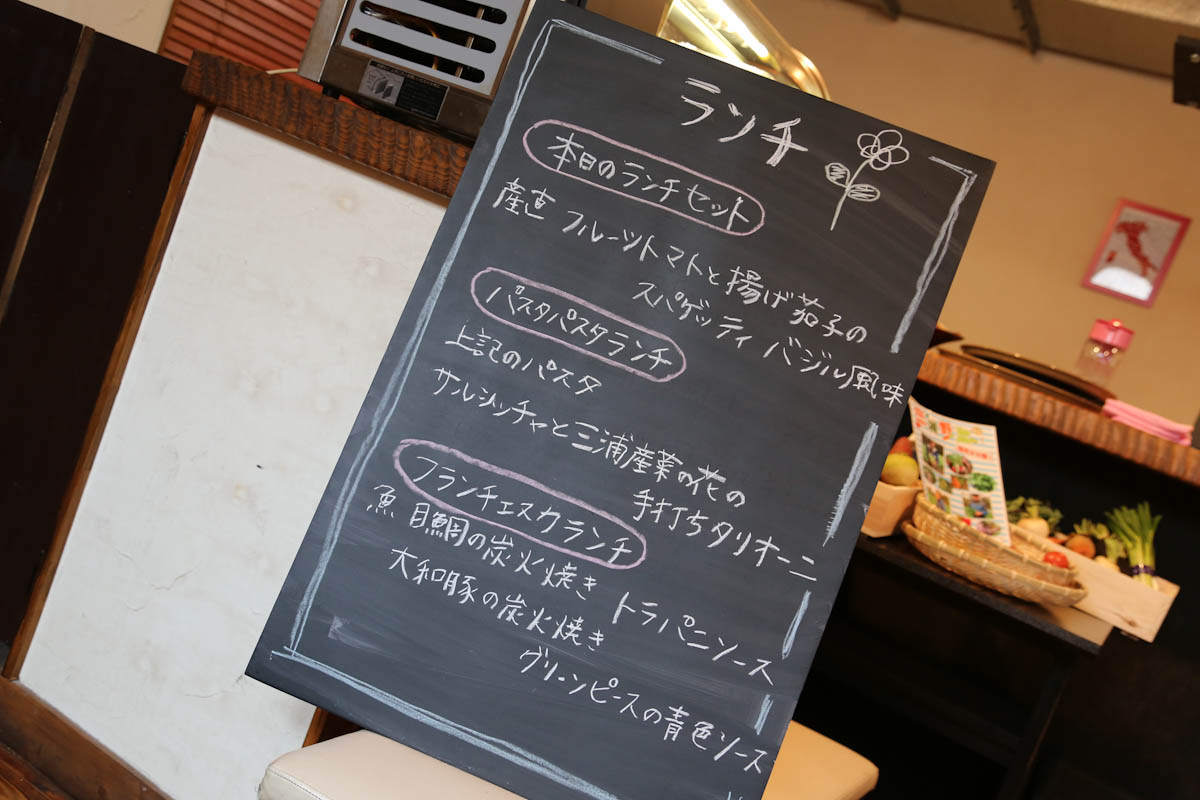 ランチ
本日のランチセット
産直 フルーツトマトと揚げ茄子の
スパゲッティ バジル風味
パスタパスタランチ
上記のパスタ
サルシッチャと三浦産菜の花の
手打ちタリオーニ
フランチェスクランチ
魚 目鯛の炭火焼き トラパニソース
大和豚の炭火焼き
グリーンピースの青色ソース